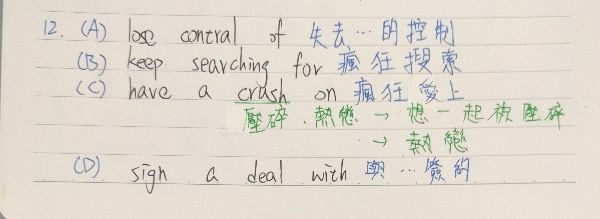 12. (A) lose control of 失去…的控制
(B) keep searching for 瘋狂搜索
(C) have a crush on 瘋狂愛上
壓碎、熱戀 → 想一起被壓碎
→ 熱戀
(D) sign a deal with 與…簽約